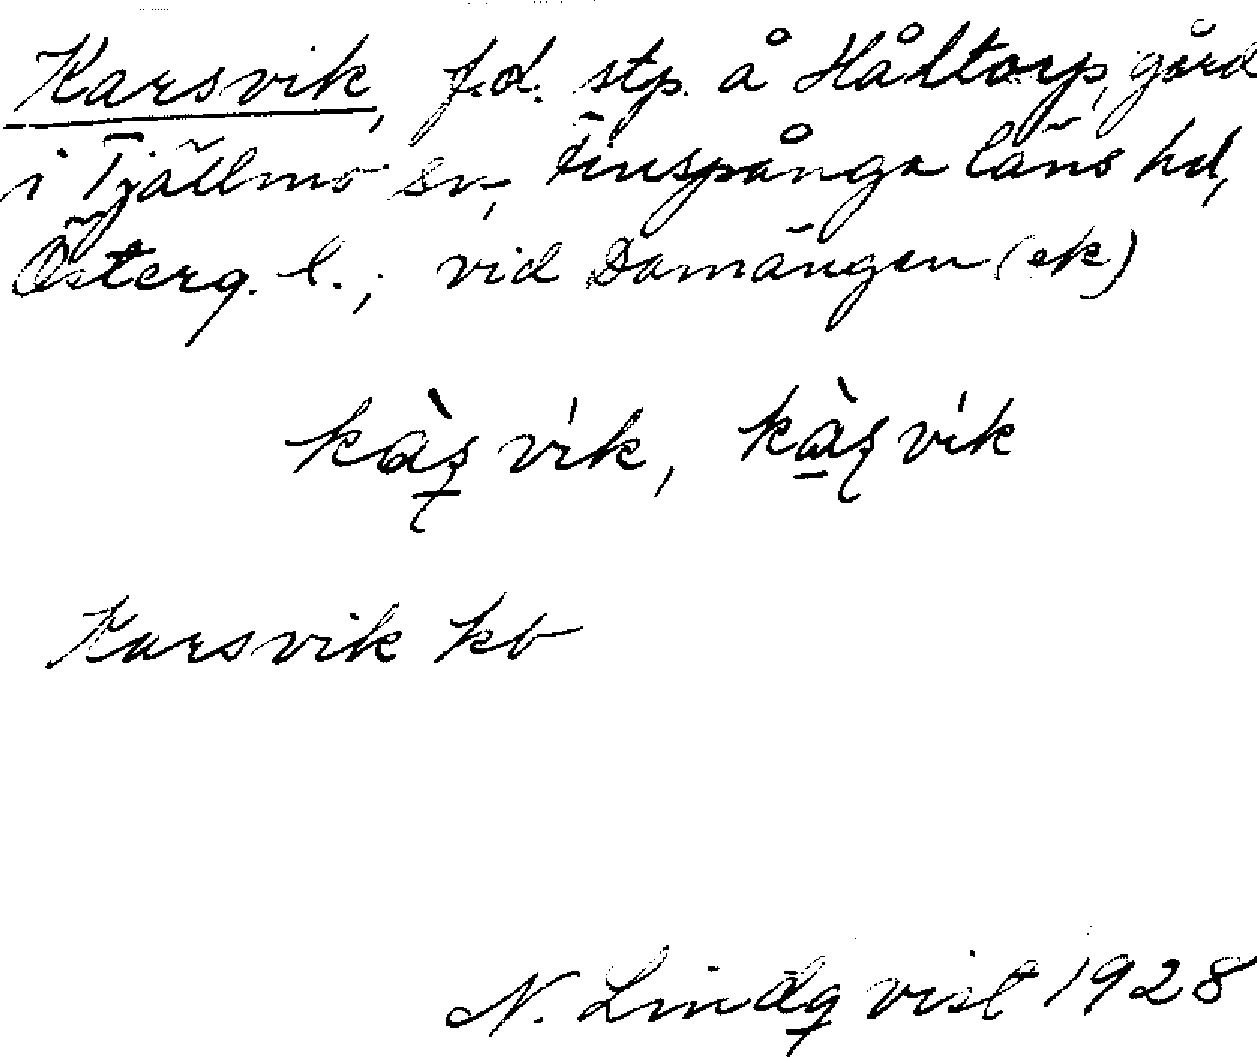 Karsvik, f.d. stp. å Håltorp, gård
i Tjällmo sn, Finspånga läns hd,
Österg. l.; vid Domängen (ek)
kàʂvik, kàʂvik
Karsvik kb
N. Lindqvist 1928